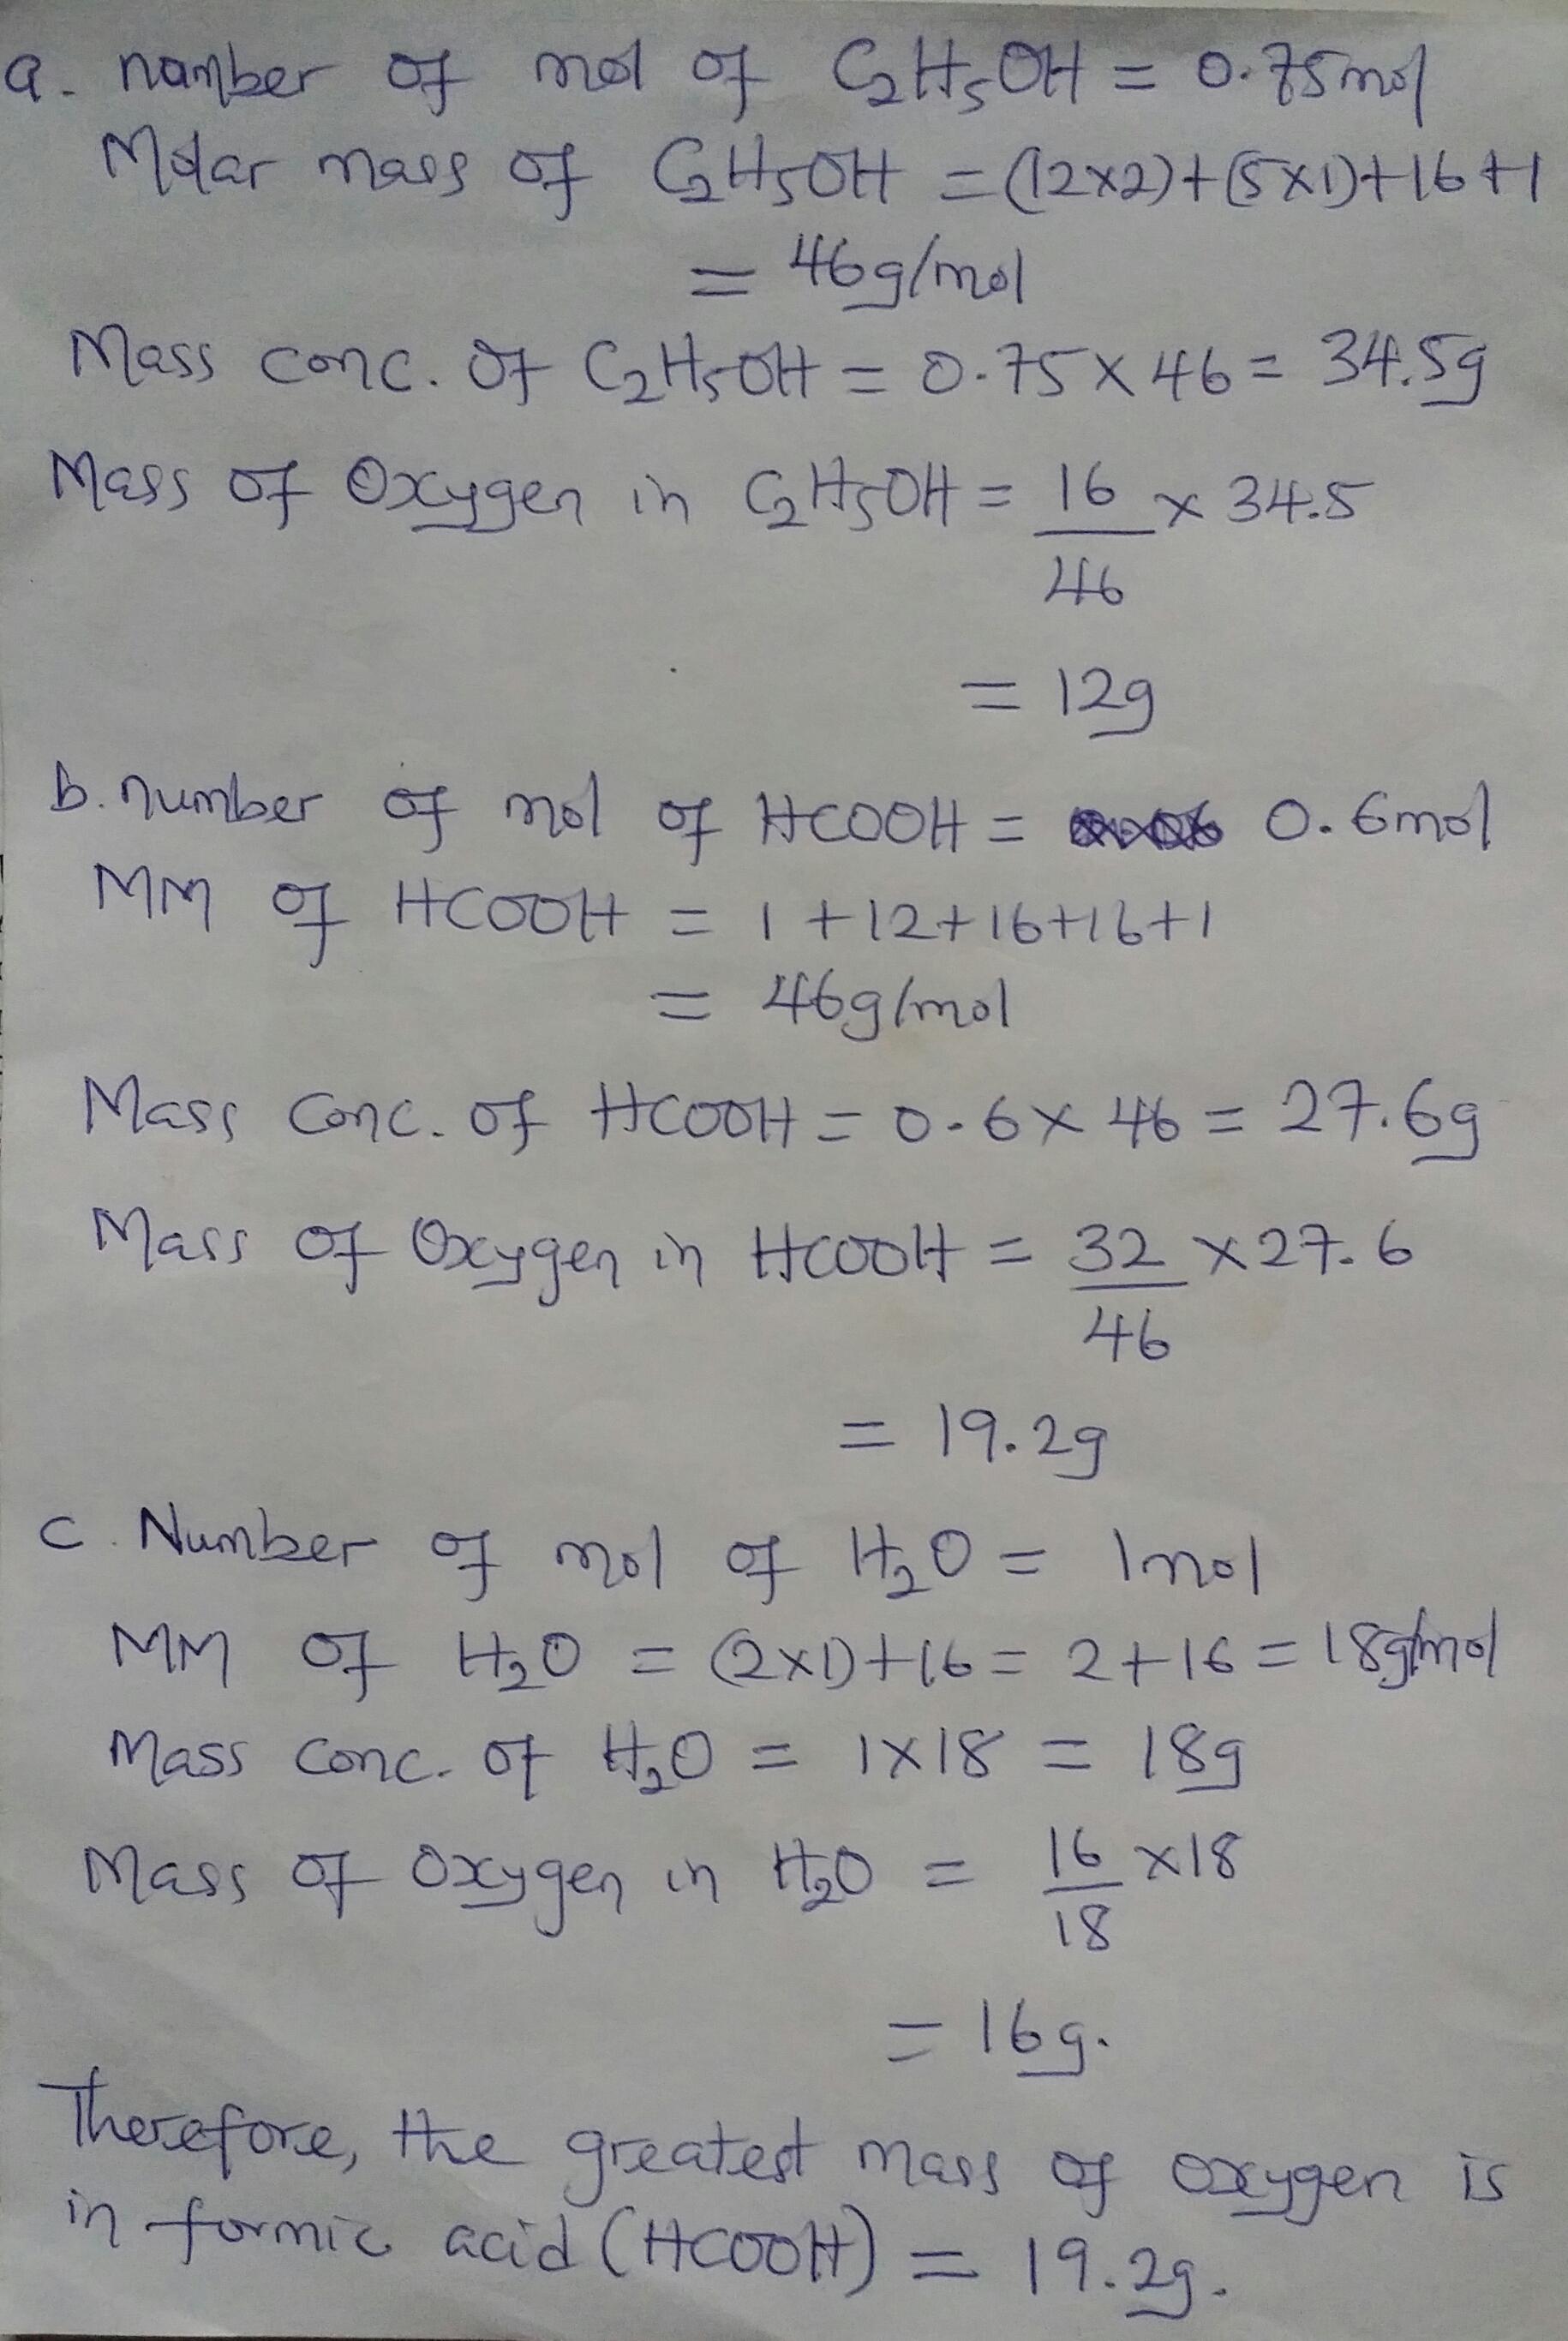 a. number of mol of C₂H₅OH = 0.75mol
Molar mass of C₂H₅OH = (12x2)+(5x1)+16+1
= 46g/mol
Mass conc. of C₂H₅OH = 0.75 x 46 = 34.5g
Mass of Oxygen in C₂H₅OH = 16 x 34.5
46
= 12g
b. number of mol of HCOOH = 0.6mol
MM of HCOOH = 1+12+16+16+1
= 46g/mol
Mass conc. of HCOOH = 0.6 x 46 = 27.6g
Mass of Oxygen in HCOOH = 32 x 27.6
46
= 19.2g
c. Number of mol of H₂O = 1mol
MM of H₂O = (2x1)+16 = 2+16 = 18g/mol
Mass conc. of H₂O = 1x18 = 18g
Mass of Oxygen in H₂O = 16 x18
18
= 16g.
Therefore, the greatest mass of oxygen is
in formic acid (HCOOH) = 19.2g.